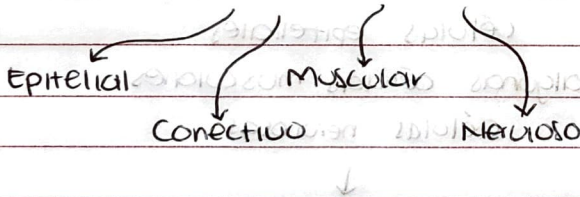 Epitelial Muscular
Conectivo Nervioso